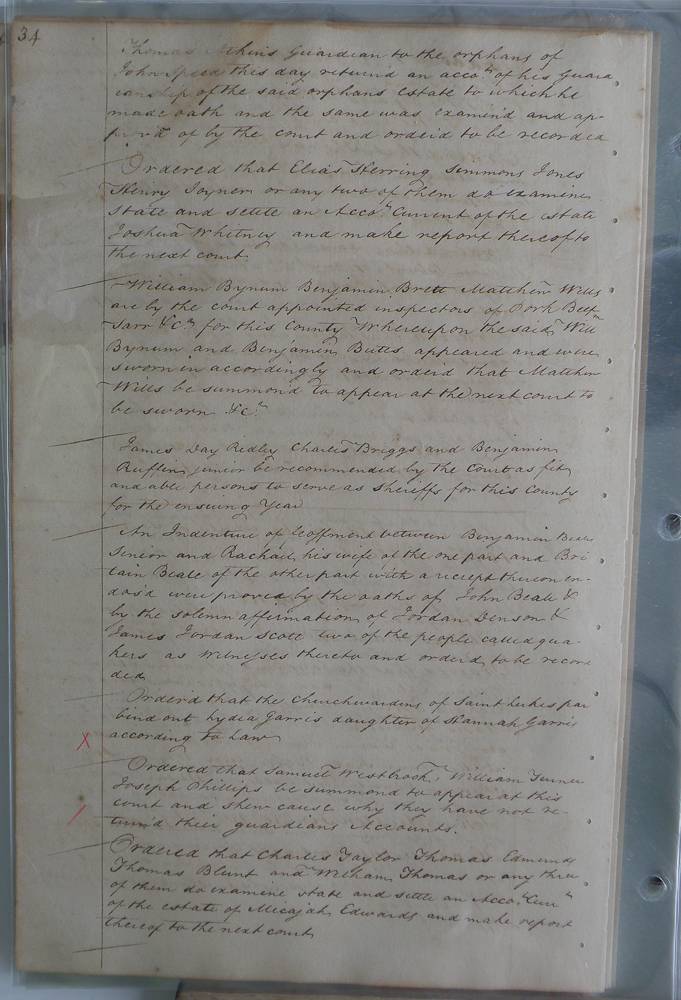 34
Thomas Atkins Guardian to the orphans of
John Speed this day returnd an acco.t of his Guard
ianship of the said orphans estate to which he
made oath and the same was examind and ap-
provd of by the court and orderd to be recorded
Ordered that Elias Herring Simmons Jones
Henry Joyner or any two of them do examine
State and settle an Acco.t Current of the estate
Joshua Whitney and make report thereof to
the next court.
William Bynum Benjamin Brett Matthew Wills
are by the court appointed inspectors of Pork Beef
Tarr &c.a for this County Whereupon the said Will.m
Bynum and Benjamin Britts appeared and were
sworn in accordingly and orderd that Matthew
Wills be summond to appear at the next court to
be sworn &c.a
James Day Ridley Charles Briggs and Benjamin
Ruffin junior be recommended by the Court as fit
and able persons to serve as Sheriffs for this County
for the ensuing Year
An Indenture of feoffment between Benjamin Beale
Senior and Rachael his wife of the one part and Bri
tain Beale of the other part with a reciept thereon en-
dosd were proved by the oaths of John Beale &
by the solemn affirmation of Jordan Denson &
James Jordan Scott two of the people called qua-
kers as Witnesses thereto and orderd to be recor
ded
Orderd that the Churchwardens of Saint Lukes par
bind out Lydia Garris daughter of Hannah Garris
according to Law
X
Ordered that Samuel Westbrook, William Turner
Joseph Phillips be summond to appear at this
court and shew cause why they have not re-
turnd their guardians Accounts.
Ordered that Charles Taylor Thomas Edmunds
Thomas Blunt and William Thomas or any three
of them do examine state and settle an Acco.t Curr.t
of the estate of Micajah Edwards and make report
thereof to the next court